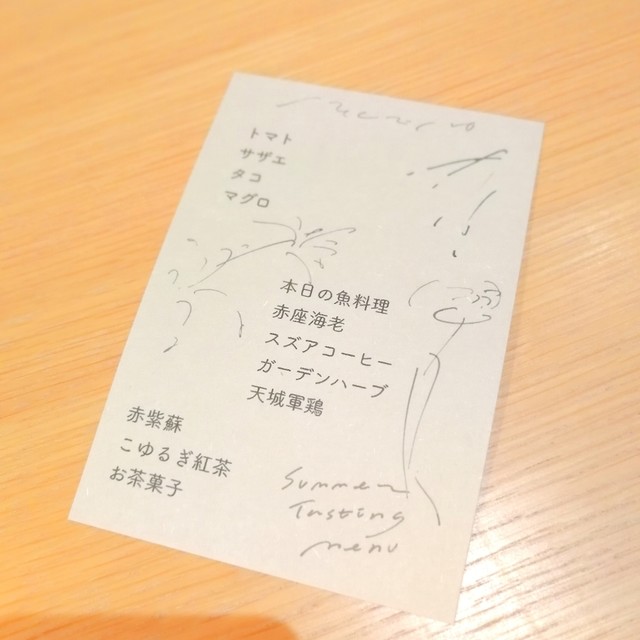 トマト
サザエ
タコ
マグロ
本日の魚料理
赤座海老
スズアコーヒー
ガーデンハーブ
天城軍鶏
赤紫蘇
こゆるぎ紅茶
お茶菓子
Summer
Tasting
menu